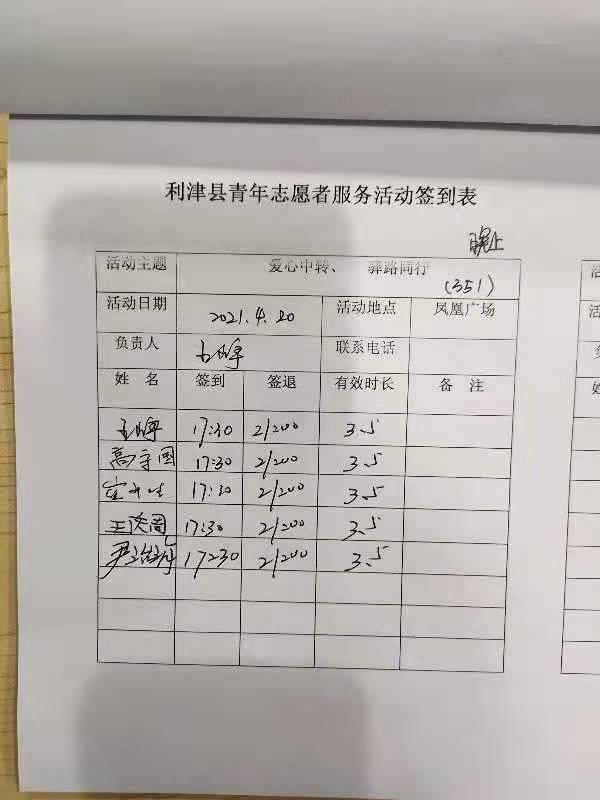 利津县青年志愿者服务活动签到表
晚上
活动主题 爱心中转、 驿路同行
(351)
活动日期 2021.4.20 活动地点 凤凰广场
负责人 联系电话
姓 名 签到 签退 有效时长 备 注
17:30 21:00 3.5
高守国 17:30 21:00 3.5
17:30 21:00 3.5
17:30 21:00 3.5
17:30 21:00 3.5